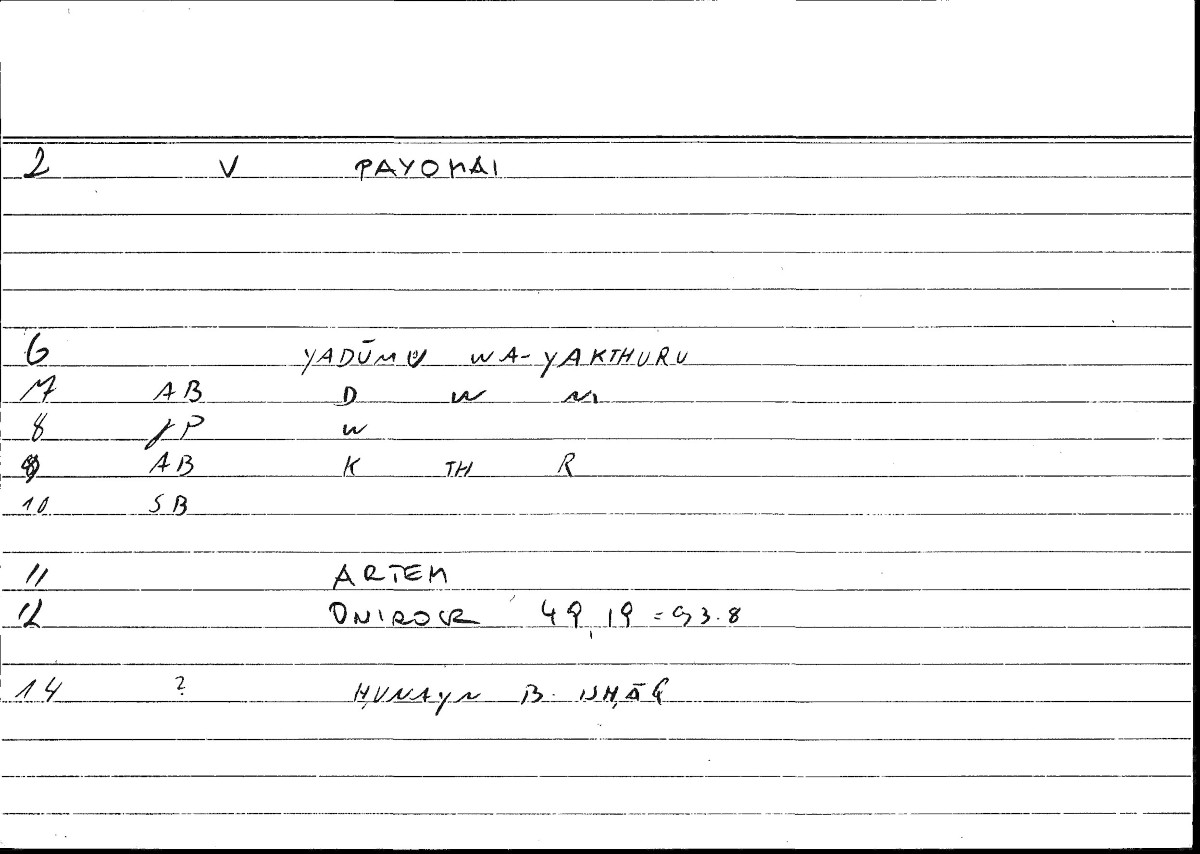 2 V PAYOMAI
6 YADŪMU WA-YAKTHURU
7 AB D W M
8 JP W
9 AB K TH R
10 SB
11 ARTEM
12 ONIROCR 49,19 = 93.8
14 ? ḤUNAYN B. ISḤĀQ